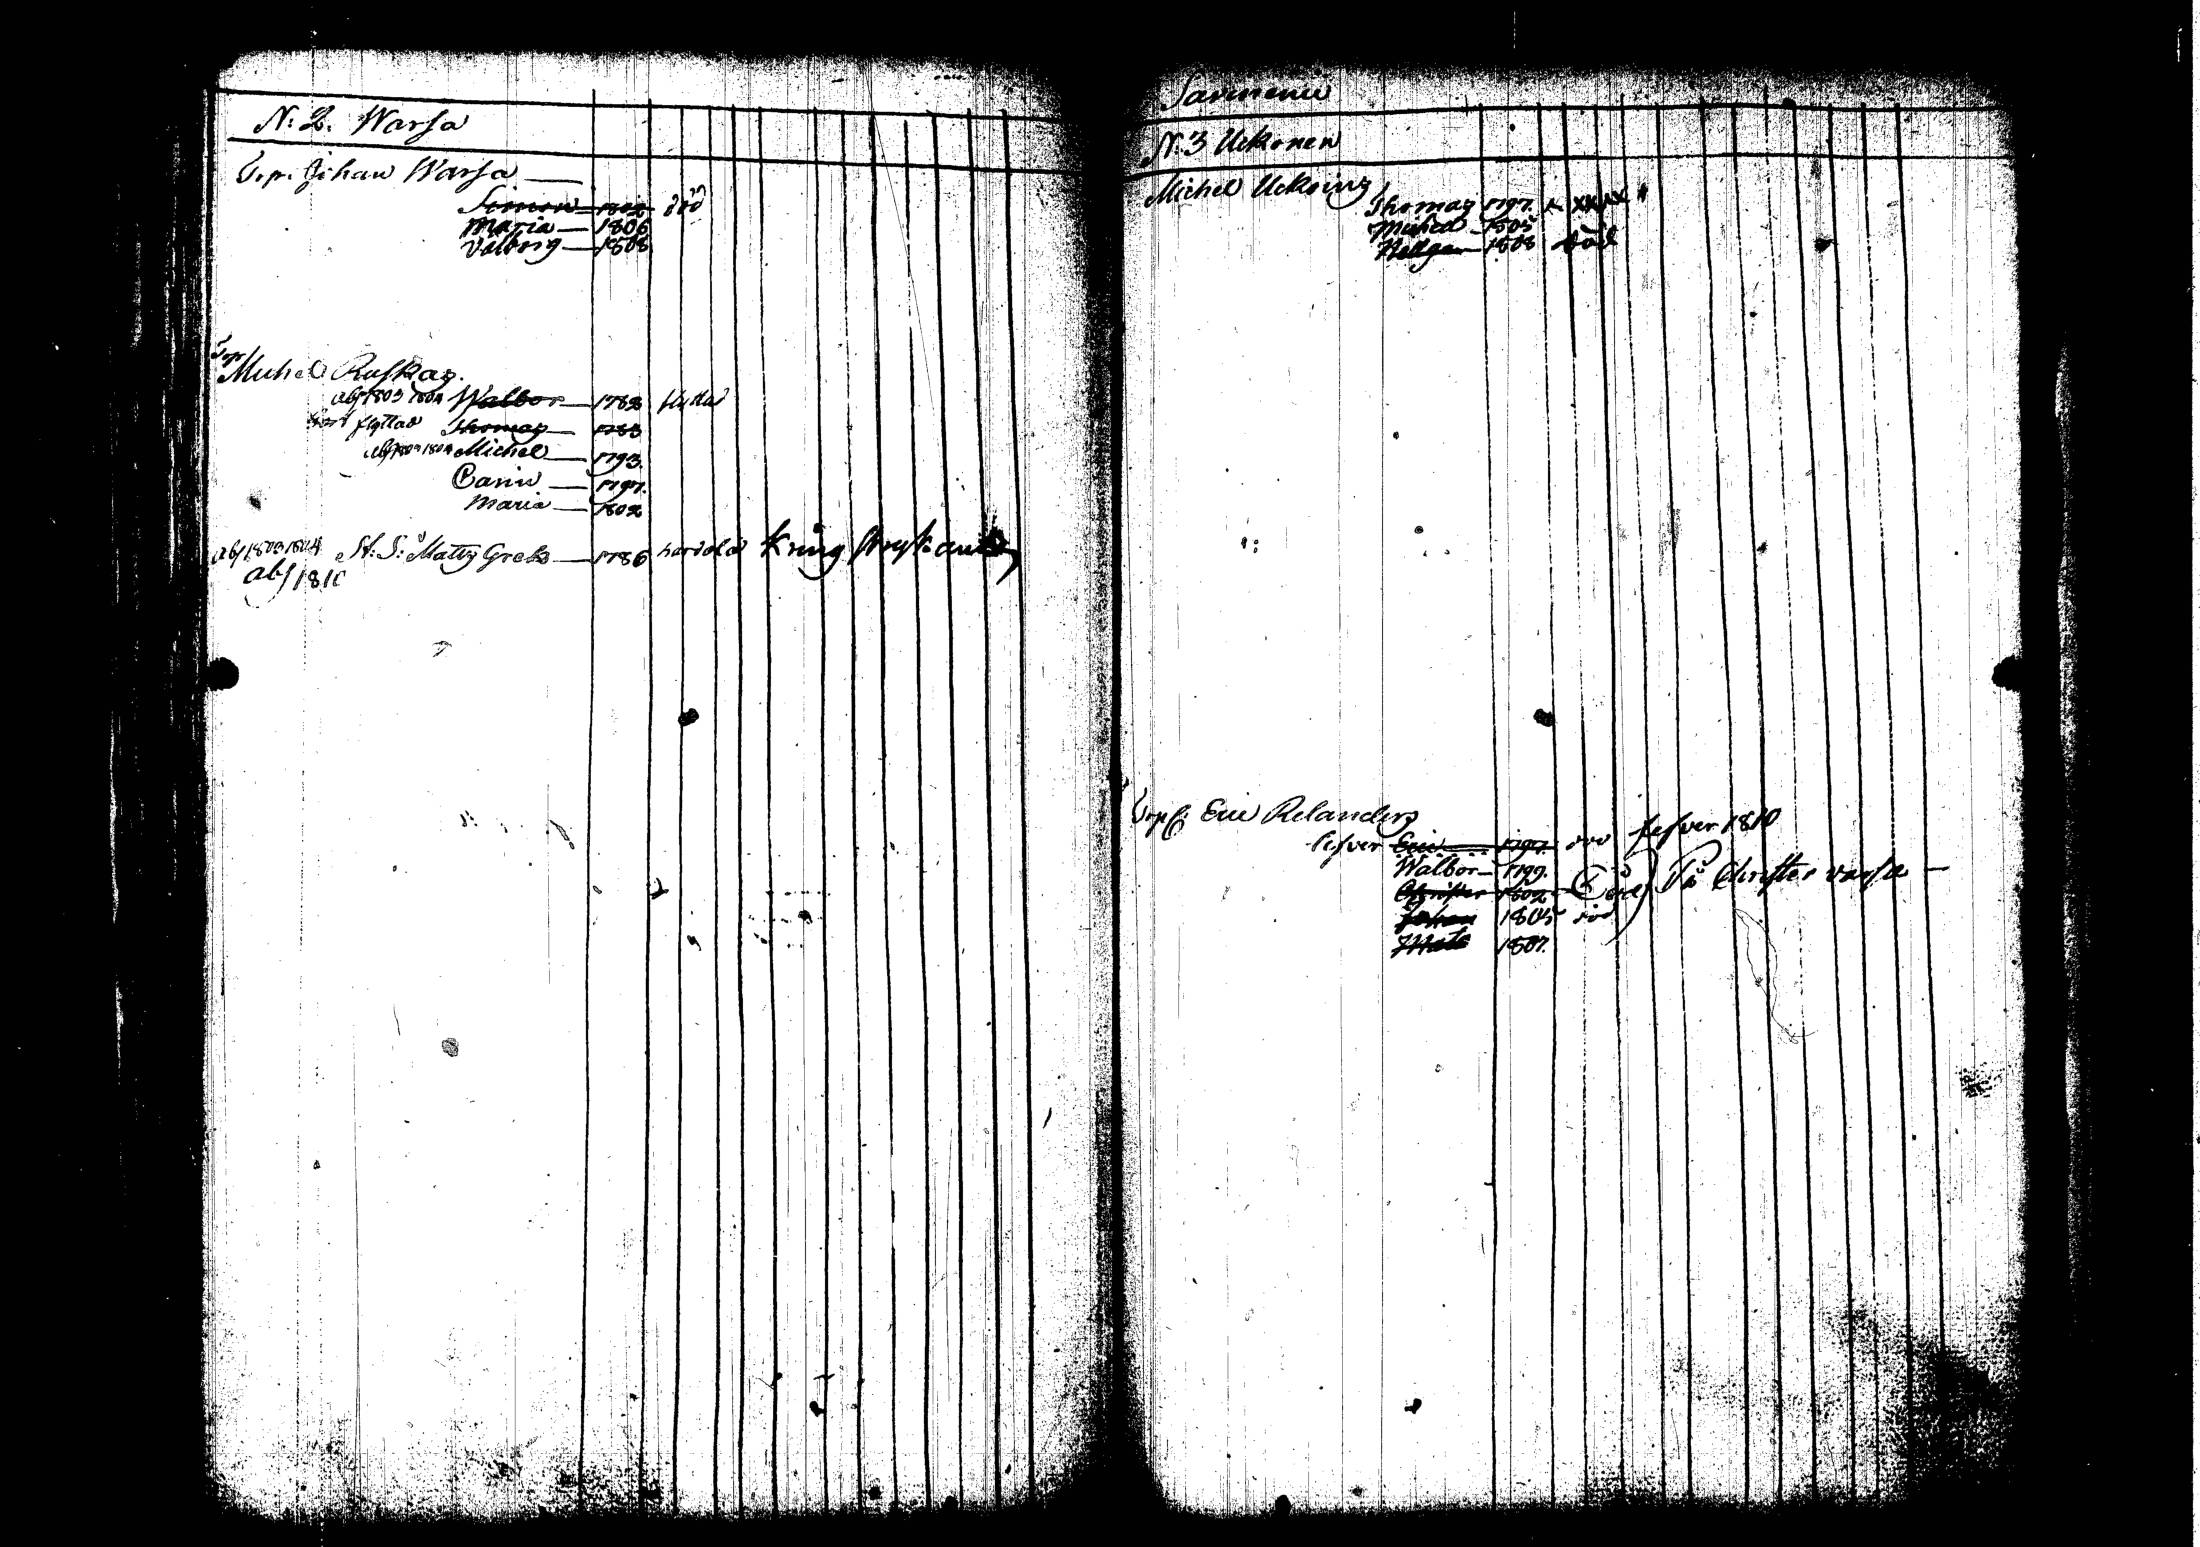 N: 2. Warsa
Torp. Johan Warsa —
Simon — 1802 död
Maria — 1806
Valborg — 1808
Torp
Michel Ruskas.
abs 1803 1804 Walbor — 1782 flyttad
flyttad Thomas — 1783
abs 1804 Michel — 1793.
Carin — 1797.
Maria — 1802
abs 1803 1804 Matts Grels — 1786 kring strykande
abs 1810
Sarmenu
N: 3 Uckonen
Michel Uckoing
Thomas 1797.
Michel 1805
Hellga 1808 död
Torp Eric Relanders
lefver Eric 1797. död lefver 1810
Walbor — 1799.
Christer 1802 På Christer varsa —
Johan 1805 död
Mats 1807.